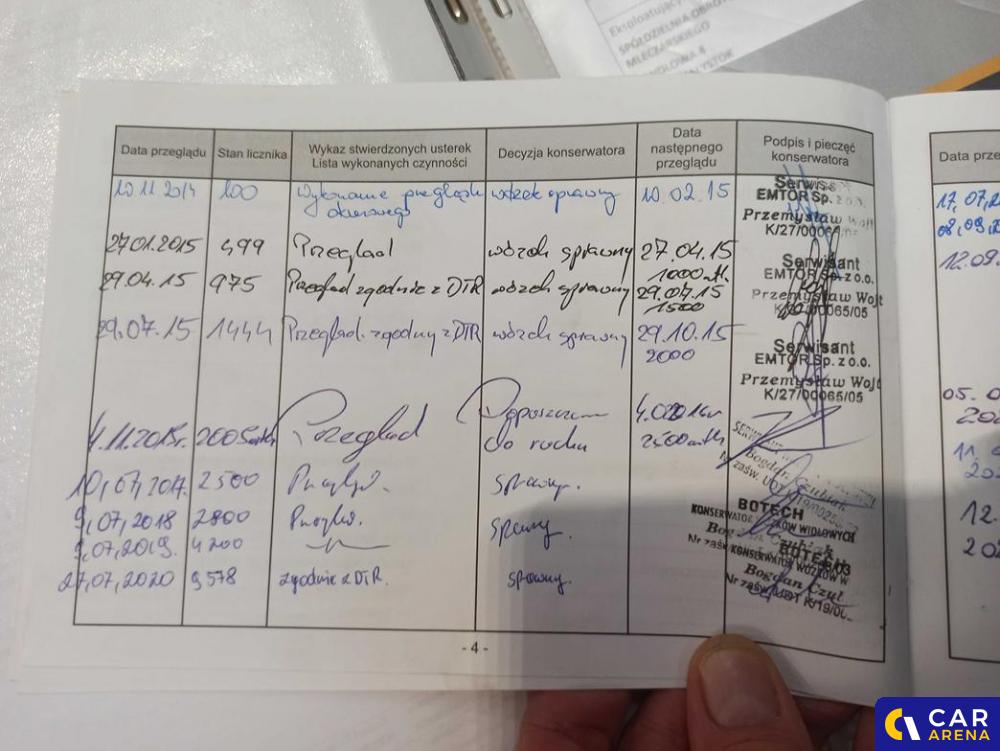 Eksploatujący
SPÓŁDZIELNIA OBRO
MLECZARSKIEGO
NDLOWA 4
YSTOK
Data przeglądu Stan licznika Wykaz stwierdzonych usterek Lista wykonanych czynności Decyzja konserwatora Data następnego przeglądu Podpis i pieczęć konserwatora
10.11.2014 100 Wykonanie przeglądu okresowego wózek sprawny 10.02.15
Serwisant
EMTOR Sp. z o.o.
Przemysław Wojt
K/27/00065
27.01.2015 499 Przegląd wózek sprawny 27.04.15
1000 mth.
29.04.15 975 Przegląd zgodnie z DTR wózek sprawny 29.07.15
1500
Serwisant
EMTOR Sp. z o.o.
Przemysław Wojt
K/27/00065/05
29.07.15 1444 Przegląd. zgodny z DTR wózek sprawny 29.10.15
2000
Serwisant
EMTOR Sp. z o.o.
Przemysław Wojt
K/27/00065/05
4.11.2015r. 2005mth Przegląd Dopuszczam do ruchu
2500mth
Bogdan
Nr zaśw. UDT
10,07,2017. 2500 Przegląd. sprawny.
9,07,2018 2800 Przegląd. sprawny.
BOTECH
KONSERWATOR WÓZKÓW WIDŁOWYCH
Bogdan
Nr zaśw
9,07,2019. 4200
27,07,2020 9578 zgodnie z DTR. sprawny.
BOTECH
KONSERWATOR WÓZKÓW W
Bogdan Czyl
Nr zaśw. UDT K/19/00
- 4 -
Data prze
17,07,2
08,09,
12.09.
05. 0
202
11,
20
12.
202
CAR
ARENA